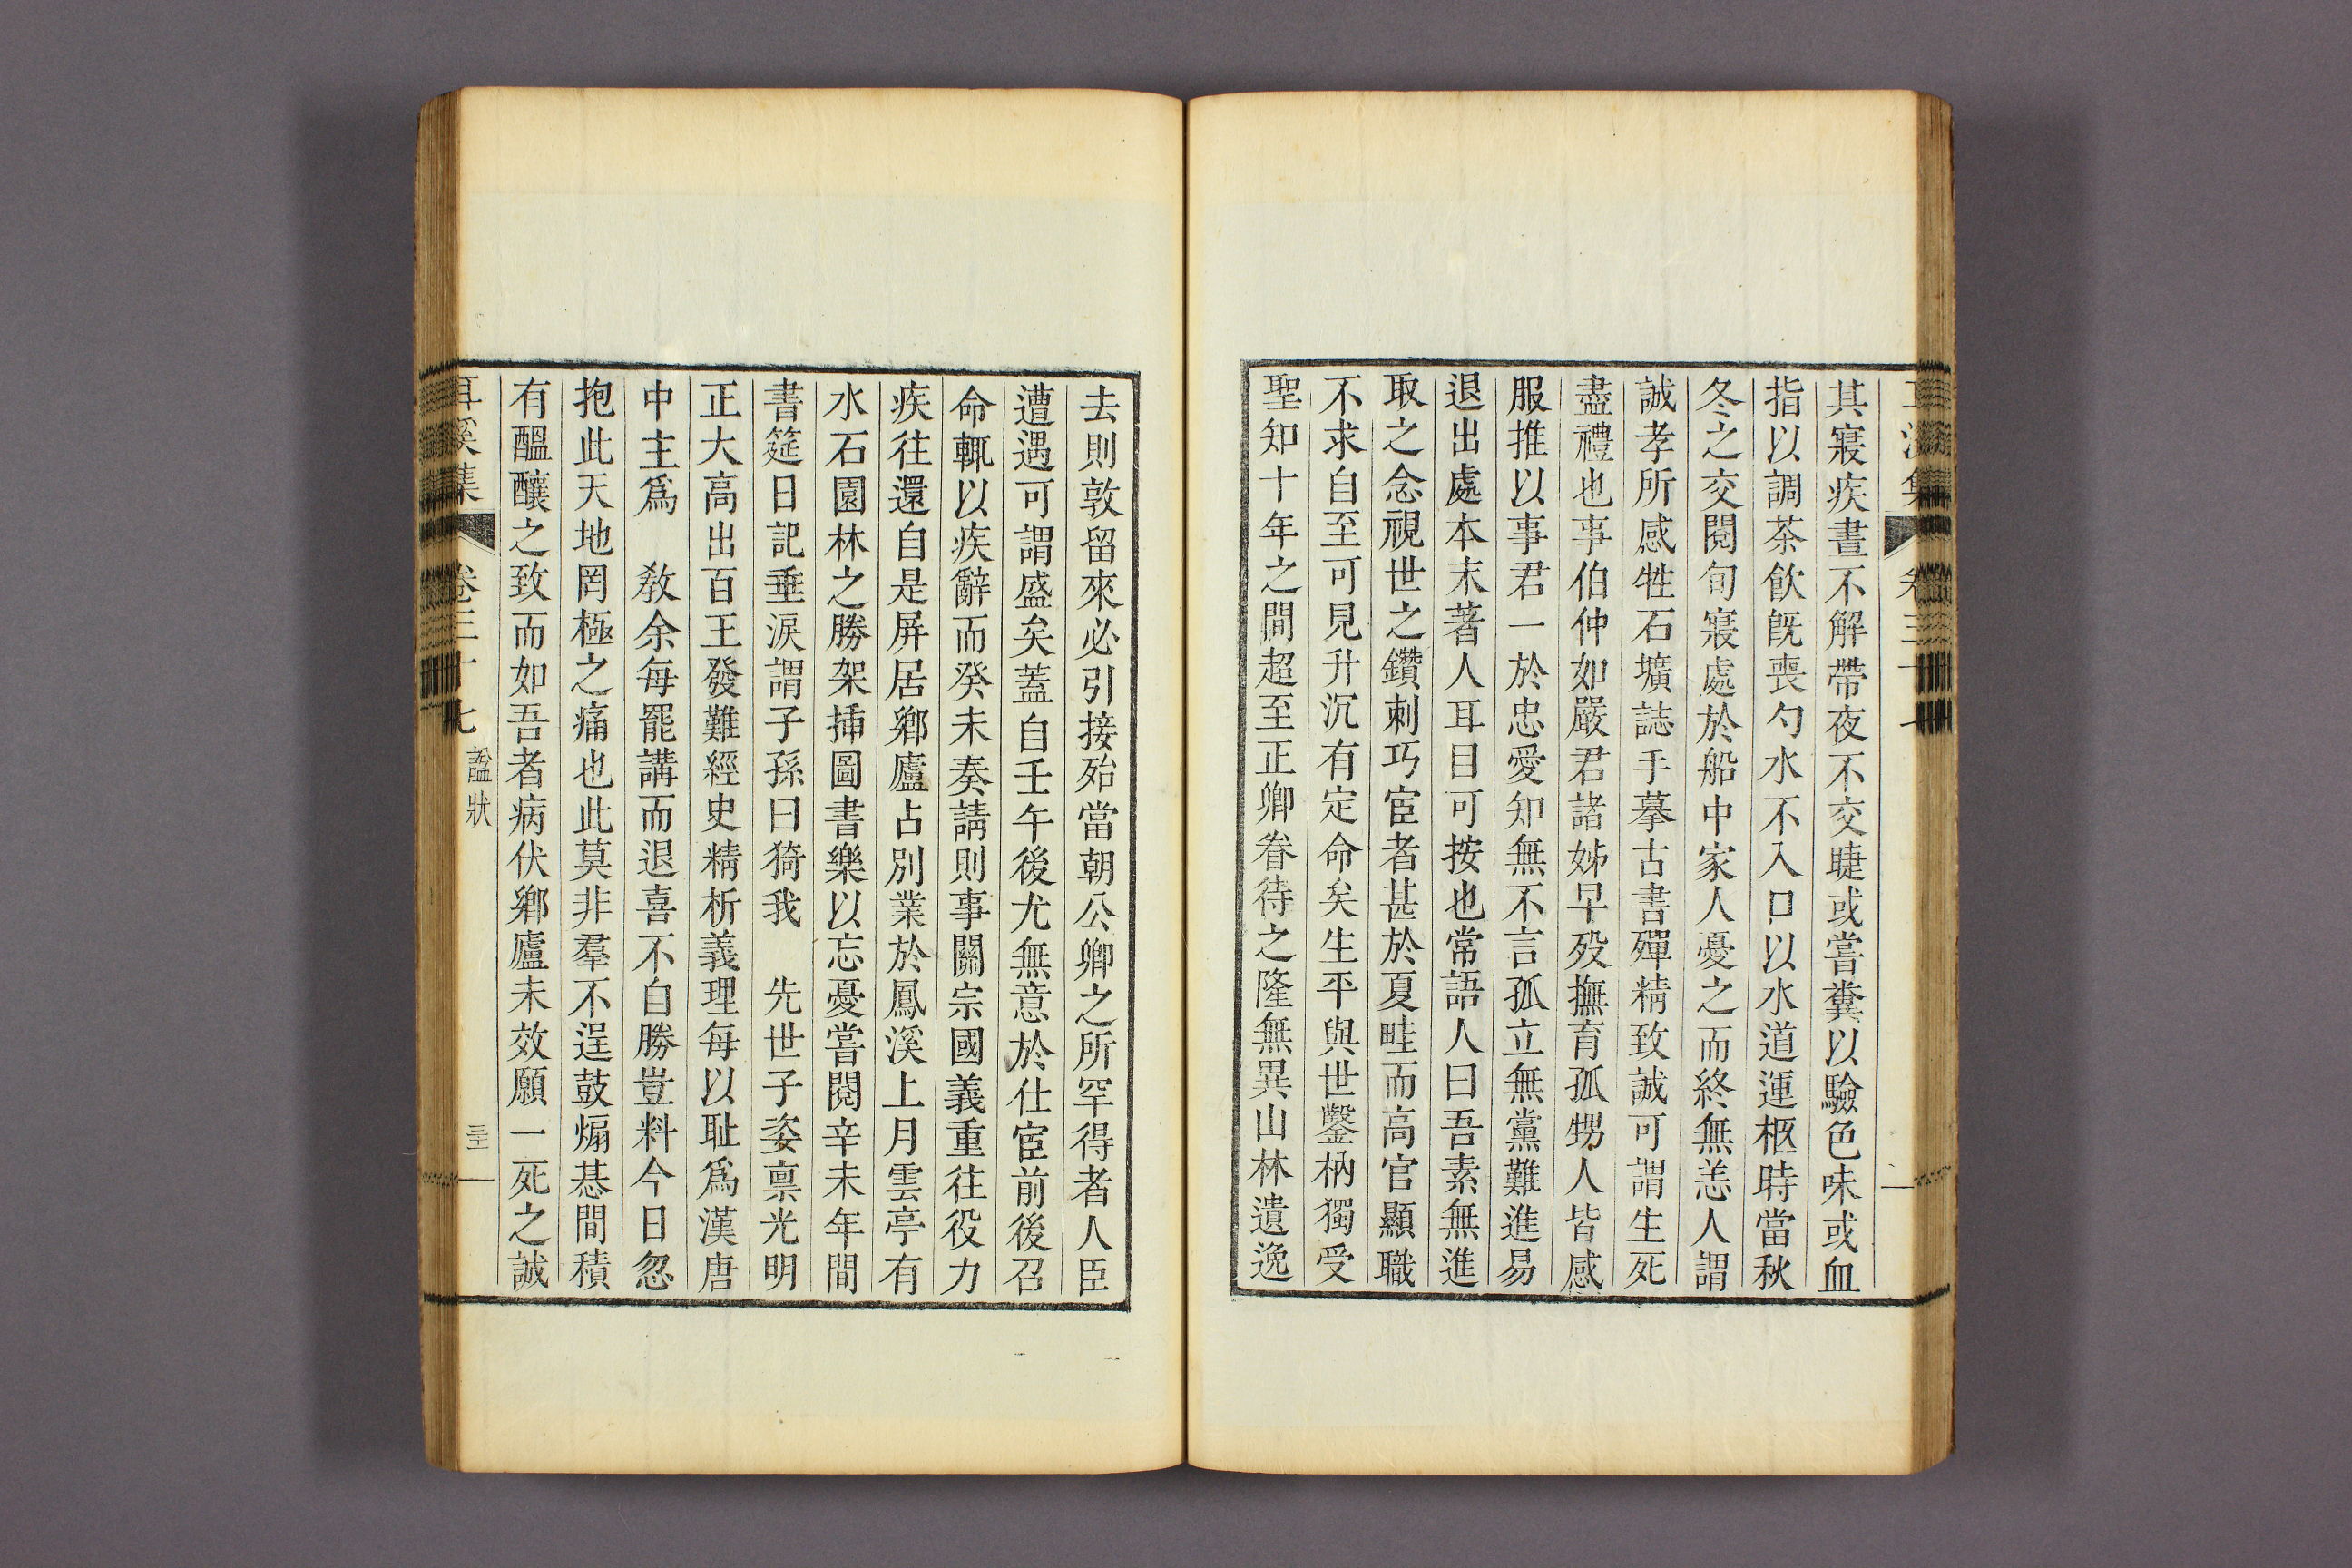 其寢疾晝不解帶夜不交睫或嘗糞以驗色味或血
指以調茶飮旣喪勺水不入口以水道運柩時當秋
冬之交閱旬寢處於船中家人憂之而終無恙人謂
誠孝所感牲石壙誌手摹古書殫精致誠可謂生死
盡禮也事伯仲如嚴君諸姊早歿撫育孤甥人皆感
服推以事君一於忠愛知無不言孤立無黨難進易
退出處本末著人耳目可按也常語人曰吾素無進
取之念視世之鑽刺巧宦者甚於夏畦而高官顯職
不求自至可見升沉有定命矣生平與世鑿枘獨受
聖知十年之間超至正卿眷待之隆無異山林遺逸
去則敦留來必引接殆當朝公卿之所罕得者人臣
遭遇可謂盛矣蓋自壬午後尤無意於仕宦前後召
命輒以疾辭而癸未奏請則事關宗國義重往役力
疾往還自是屏居鄕廬占別業於鳳溪上月雲亭有
水石園林之勝架揷圖書樂以忘憂嘗閱辛未年間
書筵日記垂淚謂子孫曰猗我 先世子姿禀光明
正大高出百王發難經史精析義理每以耻爲漢唐
中主爲 敎余每罷講而退喜不自勝豈料今日忽
抱此天地罔極之痛也此莫非羣不逞鼓煽惎間積
有醞釀之致而如吾者病伏鄕廬未效願一死之誠
耳溪集 卷三十七 諡狀